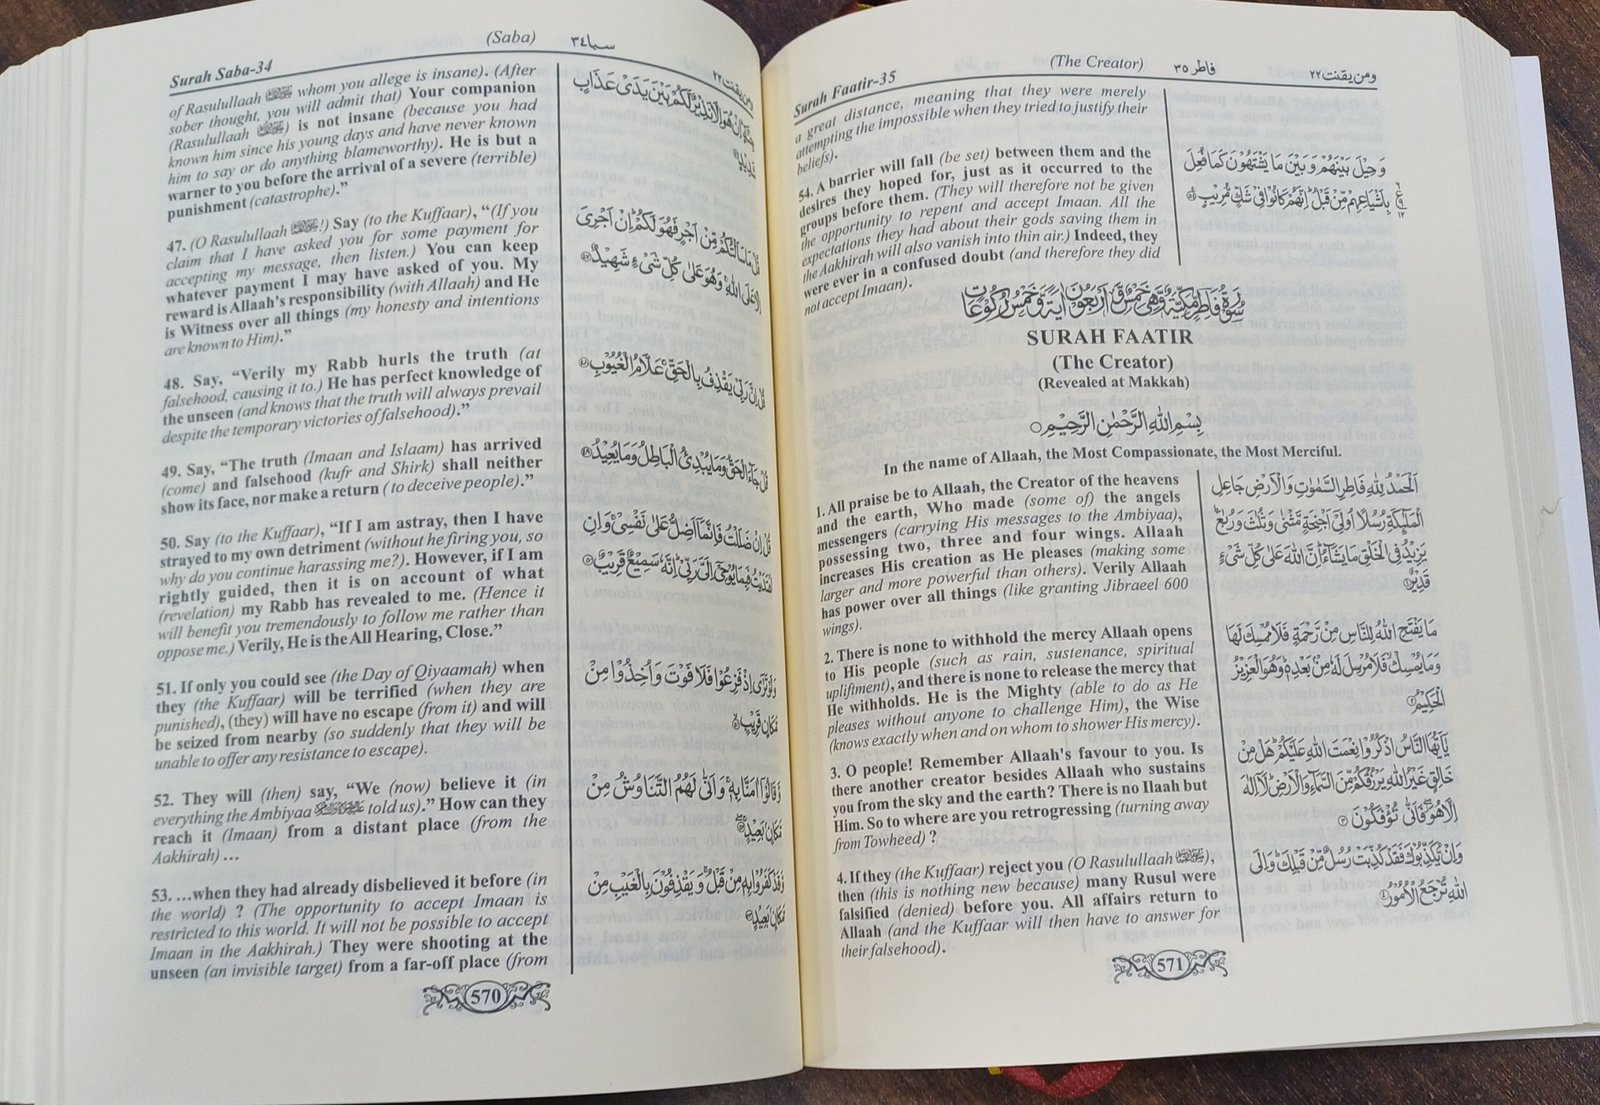 Surah Saba-34
(Saba)
سبا ٣٤
ومن يقنت ٢٢
of Rasulullaah ﷺ whom you allege is insane). (After
sober thought, you will admit that) Your companion
(Rasulullaah ﷺ) is not insane (because you had
known him since his young days and have never known
him to say or do anything blameworthy). He is but a
warner to you before the arrival of a severe (terrible)
punishment (catastrophe).”
47. (O Rasulullaah ﷺ!) Say (to the Kuffaar), “(If you
claim that I have asked you for some payment for
accepting my message, then listen.) You can keep
whatever payment I may have asked of you. My
reward is Allaah's responsibility (with Allaah) and He
is Witness over all things (my honesty and intentions
are known to Him).”
48. Say, “Verily my Rabb hurls the truth (at
falsehood, causing it to.) He has perfect knowledge of
the unseen (and knows that the truth will always prevail
despite the temporary victories of falsehood).”
49. Say, “The truth (Imaan and Islaam) has arrived
(come) and falsehood (kufr and Shirk) shall neither
show its face, nor make a return (to deceive people).”
50. Say (to the Kuffaar), “If I am astray, then I have
strayed to my own detriment (without he firing you, so
why do you continue harassing me?). However, if I am
rightly guided, then it is on account of what
(revelation) my Rabb has revealed to me. (Hence it
will benefit you tremendously to follow me rather than
oppose me.) Verily, He is the All Hearing, Close.”
51. If only you could see (the Day of Qiyaamah) when
they (the Kuffaar) will be terrified (when they are
punished), (they) will have no escape (from it) and will
be seized from nearby (so suddenly that they will be
unable to offer any resistance to escape).
52. They will (then) say, “We (now) believe it (in
everything the Ambiyaa told us).” How can they
reach it (Imaan) from a distant place (from the
Aakhirah) …
53. …when they had already disbelieved it before (in
the world) ? (The opportunity to accept Imaan is
restricted to this world. It will not be possible to accept
Imaan in the Aakhirah.) They were shooting at the
unseen (an invisible target) from a far-off place (from
جِنَّةٍ اِنْ هُوَ اِلَّا نَذِيْرٌ لَّكُمْ بَيْنَ يَدَىْ عَذَابٍ
شَدِيْدٍ
قُلْ مَا سَاَلْتُكُمْ مِّنْ اَجْرٍ فَهُوَ لَكُمْ اِنْ اَجْرِىَ
اِلَّا عَلَى اللّٰهِ وَهُوَ عَلٰى كُلِّ شَىْءٍ شَهِيْدٌ
قُلْ اِنَّ رَبِّىْ يَقْذِفُ بِالْحَقِّ عَلَّامُ الْغُيُوْبِ
قُلْ جَآءَ الْحَقُّ وَمَا يُبْدِئُ الْبَاطِلُ وَمَا يُعِيْدُ
قُلْ اِنْ ضَلَلْتُ فَاِنَّمَآ اَضِلُّ عَلٰى نَفْسِىْ وَاِنِ
اهْتَدَيْتُ فَبِمَا يُوْحِىْٓ اِلَىَّ رَبِّىْ اِنَّهٗ سَمِيْعٌ قَرِيْبٌ
وَلَوْ تَرٰٓى اِذْ فَزِعُوْا فَلَا فَوْتَ وَاُخِذُوْا مِنْ
مَّكَانٍ قَرِيْبٍ
وَّقَالُوْٓا اٰمَنَّا بِهٖ وَاَنّٰى لَهُمُ التَّنَاوُشُ مِنْ
مَّكَانٍ بَعِيْدٍ
وَّقَدْ كَفَرُوْا بِهٖ مِنْ قَبْلُ وَيَقْذِفُوْنَ بِالْغَيْبِ مِنْ
مَّكَانٍ بَعِيْدٍ
570
Surah Faatir-35
(The Creator)
فاطر ٣٥
ومن يقنت ٢٢
a great distance, meaning that they were merely
attempting the impossible when they tried to justify their
beliefs).
54. A barrier will fall (be set) between them and the
desires they hoped for, just as it occurred to the
groups before them. (They will therefore not be given
the opportunity to repent and accept Imaan. All the
expectations they had about their gods saving them in
the Aakhirah will also vanish into thin air.) Indeed, they
were ever in a confused doubt (and therefore they did
not accept Imaan).
وَحِيْلَ بَيْنَهُمْ وَبَيْنَ مَا يَشْتَهُوْنَ كَمَا فُعِلَ
بِاَشْيَاعِهِمْ مِّنْ قَبْلُ اِنَّهُمْ كَانُوْا فِىْ شَكٍّ مُّرِيْبٍ
سُوْرَةُ فَاطِرٍ مَّكِّيَّةٌ وَّهِىَ خَمْسٌ وَّاَرْبَعُوْنَ اٰيَةً وَّخَمْسُ رُكُوْعَاتٍ
SURAH FAATIR
(The Creator)
(Revealed at Makkah)
بِسْمِ اللّٰهِ الرَّحْمٰنِ الرَّحِيْمِ
In the name of Allaah, the Most Compassionate, the Most Merciful.
1. All praise be to Allaah, the Creator of the heavens
and the earth, Who made (some of) the angels
messengers (carrying His messages to the Ambiyaa),
possessing two, three and four wings. Allaah
increases His creation as He pleases (making some
larger and more powerful than others). Verily Allaah
has power over all things (like granting Jibraeel 600
wings).
2. There is none to withhold the mercy Allaah opens
to His people (such as rain, sustenance, spiritual
upliftment), and there is none to release the mercy that
He withholds. He is the Mighty (able to do as He
pleases without anyone to challenge Him), the Wise
(knows exactly when and on whom to shower His mercy).
3. O people! Remember Allaah's favour to you. Is
there another creator besides Allaah who sustains
you from the sky and the earth? There is no Ilaah but
Him. So to where are you retrogressing (turning away
from Towheed) ?
4. If they (the Kuffaar) reject you (O Rasulullaah ﷺ),
then (this is nothing new because) many Rusul were
falsified (denied) before you. All affairs return to
Allaah (and the Kuffaar will then have to answer for
their falsehood).
اَلْحَمْدُ لِلّٰهِ فَاطِرِ السَّمٰوٰتِ وَالْاَرْضِ جَاعِلِ
الْمَلٰٓئِكَةِ رُسُلًا اُولِىْٓ اَجْنِحَةٍ مَّثْنٰى وَثُلٰثَ وَرُبٰعَ
يَزِيْدُ فِى الْخَلْقِ مَا يَشَآءُ اِنَّ اللّٰهَ عَلٰى كُلِّ شَىْءٍ
قَدِيْرٌ
مَا يَفْتَحِ اللّٰهُ لِلنَّاسِ مِنْ رَّحْمَةٍ فَلَا مُمْسِكَ لَهَا
وَمَا يُمْسِكْ فَلَا مُرْسِلَ لَهٗ مِنْ بَعْدِهٖ وَهُوَ الْعَزِيْزُ
الْحَكِيْمُ
يٰٓاَيُّهَا النَّاسُ اذْكُرُوْا نِعْمَتَ اللّٰهِ عَلَيْكُمْ هَلْ مِنْ
خَالِقٍ غَيْرُ اللّٰهِ يَرْزُقُكُمْ مِّنَ السَّمَآءِ وَالْاَرْضِ لَآ اِلٰهَ
اِلَّا هُوَ فَاَنّٰى تُؤْفَكُوْنَ
وَاِنْ يُّكَذِّبُوْكَ فَقَدْ كُذِّبَتْ رُسُلٌ مِّنْ قَبْلِكَ وَاِلَى
اللّٰهِ تُرْجَعُ الْاُمُوْرُ
571